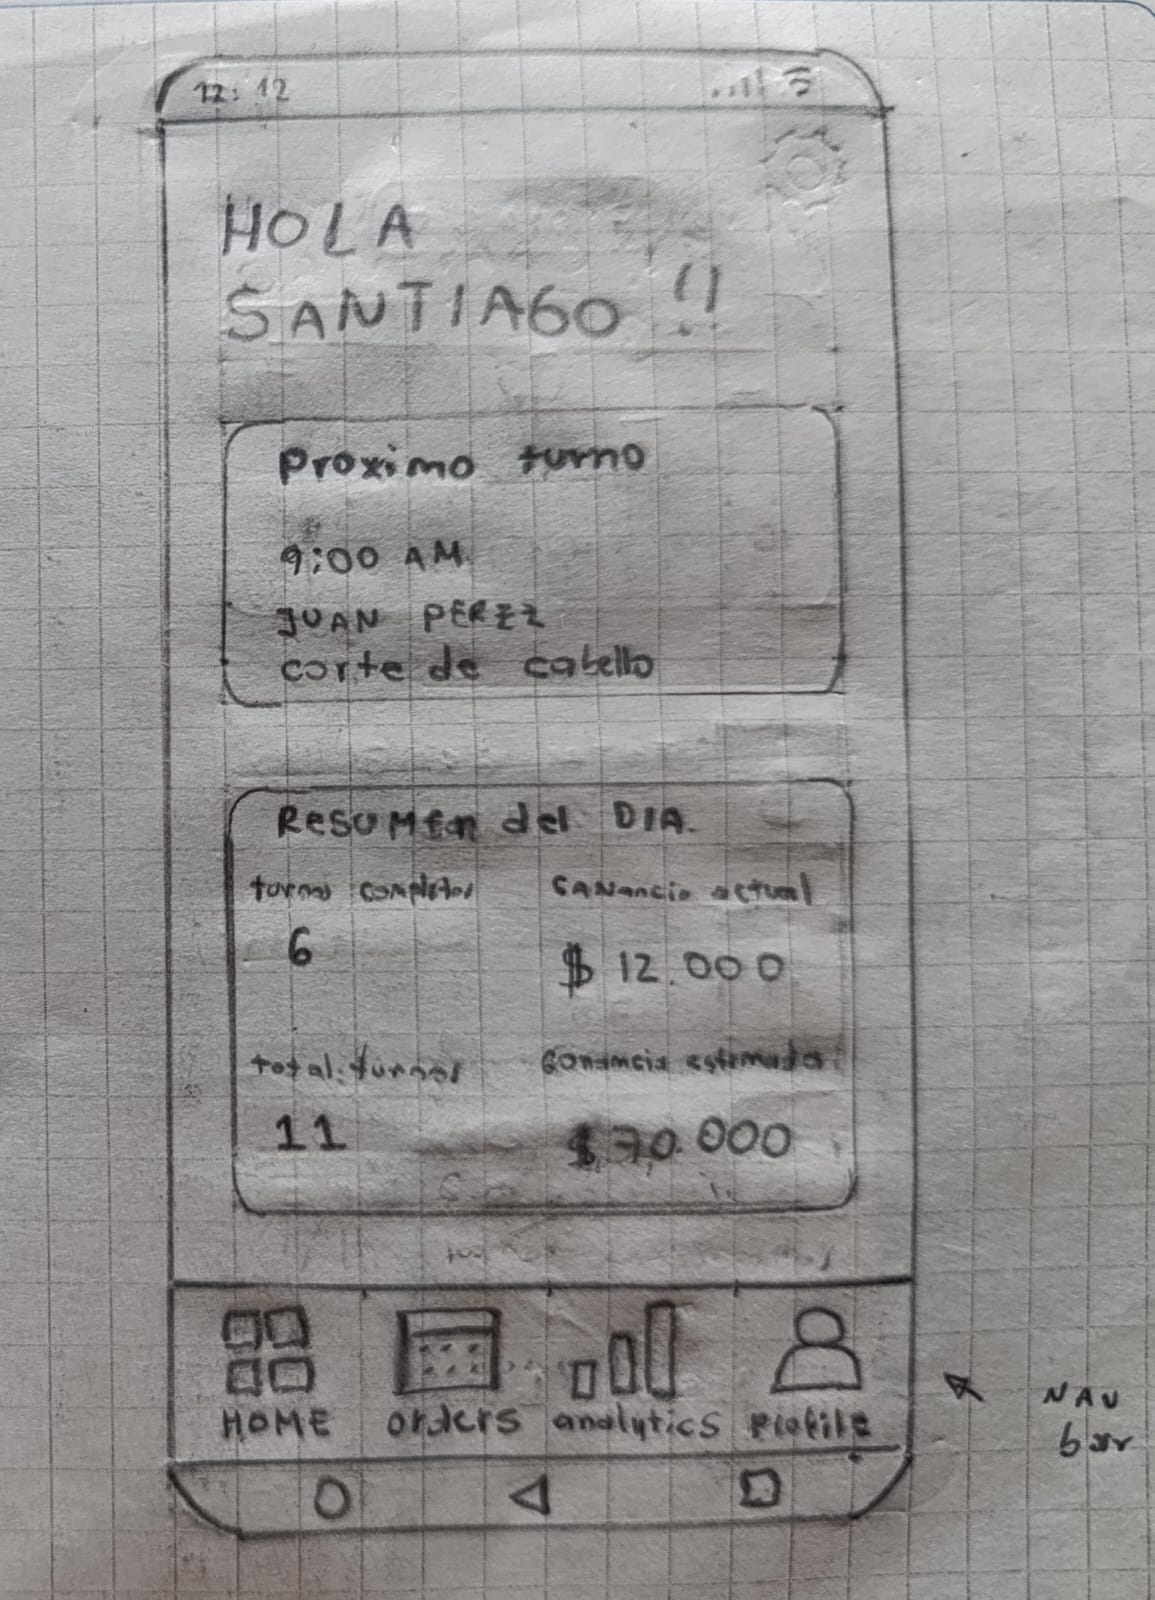 12:12
HOLA
SANTIAGO !!
Proximo turno
9:00 AM.
JUAN PEREZ
corte de cabello
Resumen del DIA.
turnos completos
GANancia actual
6
$ 12.000
total: turnos
Ganancia estimada
11
$ 70.000
HOME
orders
analytics
Profile
NAV
bar